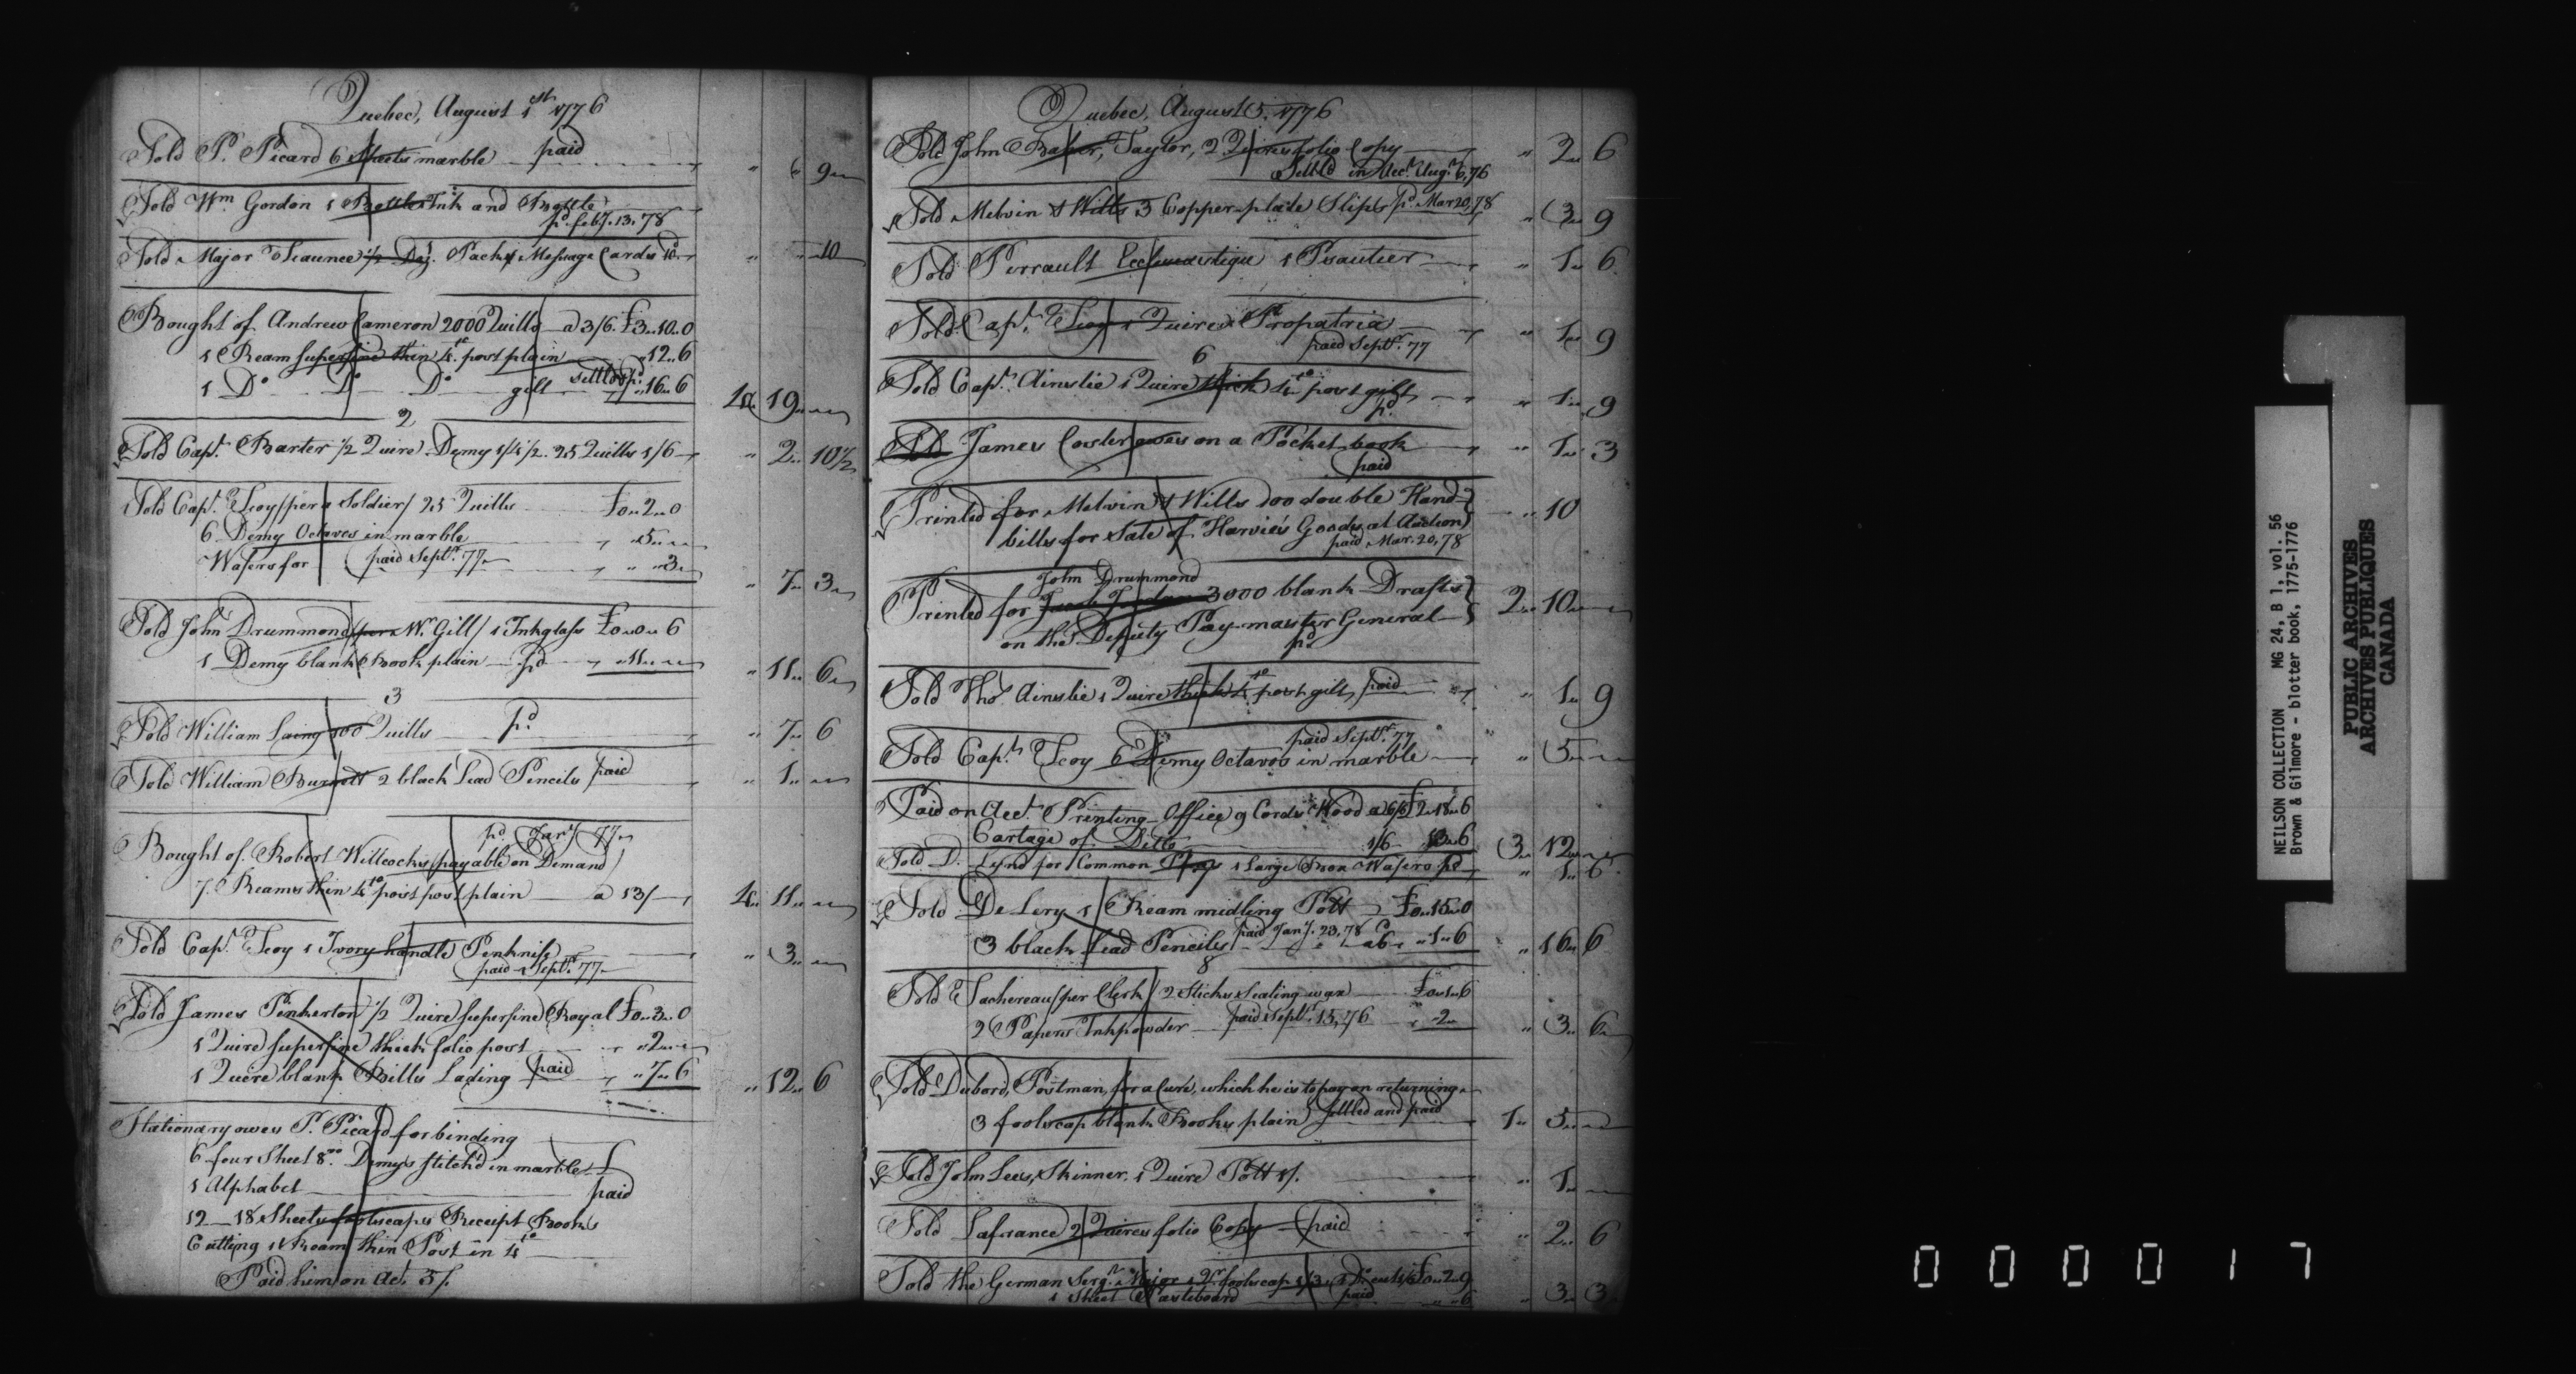 Quebec, August 1st 1776
Sold P. Picard 6 Sheets marble paid " " 9
Sold Wm. Gordon 1 Bottle Ink and Bottle
pd. feby. 13. 78
Sold Major 1/2 Pack Message Cards 10d " " 10
Bought of Andrew Cameron 2000 Quills a 3/6. £3.. 10.. 0
1 Ream superfine thin 4to. post plain " 12.. 6
1 Do. Do. Do. gilt settled " 16.. 6 4.. 19..
2
Sold Capt. Barter 1/2 Quire Demy 1/4 1/2. 25 Quills 1/6 " 2.. 10 1/2
Sold Capt. Scoy /per a Soldier/ 25 Quills £0.. 2.. 0
6 Demy Octavos in marble " 5..
Wafers for paid Septr. 77 " " 3 " 7.. 3
Sold John Drummond /per W. Gill/ 1 Inkglass £0.. 0.. 6
1 Demy blank Book plain pd " 11.. " 11.. 6
3
Sold William Laing 100 Quills pd. " 7.. 6
Sold William Burnett 2 black Lead Pencils paid " 1..
pd. Jany 77
Bought of Robert Willcocks /payable on Demand/
7 Reams thin 4to post post plain a 13/ 4.. 11..
Sold Capt. Scoy 1 Ivory handle Penknife " 3..
paid Septr. 77
Sold James Penkerton 1/2 Quire superfine Royal £0.. 3.. 0
1 Quire superfine thick folio post " 2..
1 Quire blank Bills Lading paid " 7.. 6 " 12.. 6
Stationary owes P. Picard for binding
6 four Sheet 8vo. Demys stitch'd in marble
1 Alphabet paid
12 18 Sheets foolscaps Receipt Books
Cutting 1 Ream thin Post in 4to
Paid him on Act. 5/.
Quebec, August 5. 1776
Sold John Baker, Taylor, 2 Quires folio Copy " 2.. 6
Settld in Acct. Augt. 6, 76
Sold Melvin & Wills 3 Copper-plate Slips pd. Mar 20, 78 " 3.. 9
Sold Perrault Ecclesiastique 1 Psautier " 1.. 6
Sold Capt. Scoy 1 Quire Propatria " 1.. 9
paid Septr. 77
6
Sold Capt. Ainslie 1 Quire thick 4to post gilt " 1.. 9
pd.
Sold James Coster owes on a Pocket book " 1.. 3
paid
Printed for Melvin & Wills 100 double Hand-
bills for Sale of Harvie's Goods at Auction " 10
paid Mar. 20, 78
John Drummond
Printed for Jacob Jordan 3000 blank Drafts
on the Deputy Pay-master General 2.. 10..
pd.
Sold Thos. Ainslie 1 Quire thick 4to post gilt, paid " 1.. 9
paid Septr. 77
Sold Capt. Scoy 6 Demy Octavos in marble " 5..
Paid on Acct. Printing-Office 9 Cords Wood a 6/6 £2.. 18.. 6
Cartage of Ditto 1/6 13.. 6 3.. 12..
Sold D. Lynd for Common 1 Large Box Wafers pd. " 1.. 6
Sold De Lery 1 Ream midling Pott £0.. 15.. 0
3 black Lead Pencils paid Jany. 23, 78 a 6 " 1.. 6 " 16.. 6
8
Sold Juchereau /per Clerk/ 2 Sticks Sealing wax £0.. 1.. 6
2 Papers Inkpowder paid Septr. 15, 76 " 2.. " 3.. 6
Sold Dubord, Postman, for a Curé, which he is to pay on returning
3 foolscap blank Books plain settled and paid 1.. 5..
Sold John Lees, Skinner, 1 Quire Pott 1/. " 1..
Sold Lafrance 2 Quires folio Copy paid " 2.. 6
Sold the German Sergt. Major 1 Qr. foolscap 1/3, 1 Do. cut 1/6 £0.. 2.. 9
1 Sheet Pasteboard paid " " 6 " 3.. 3
NEILSON COLLECTION MG 24, B 1, vol. 56
Brown & Gilmore - blotter book, 1775-1776
PUBLIC ARCHIVES
ARCHIVES PUBLIQUES
CANADA
000017